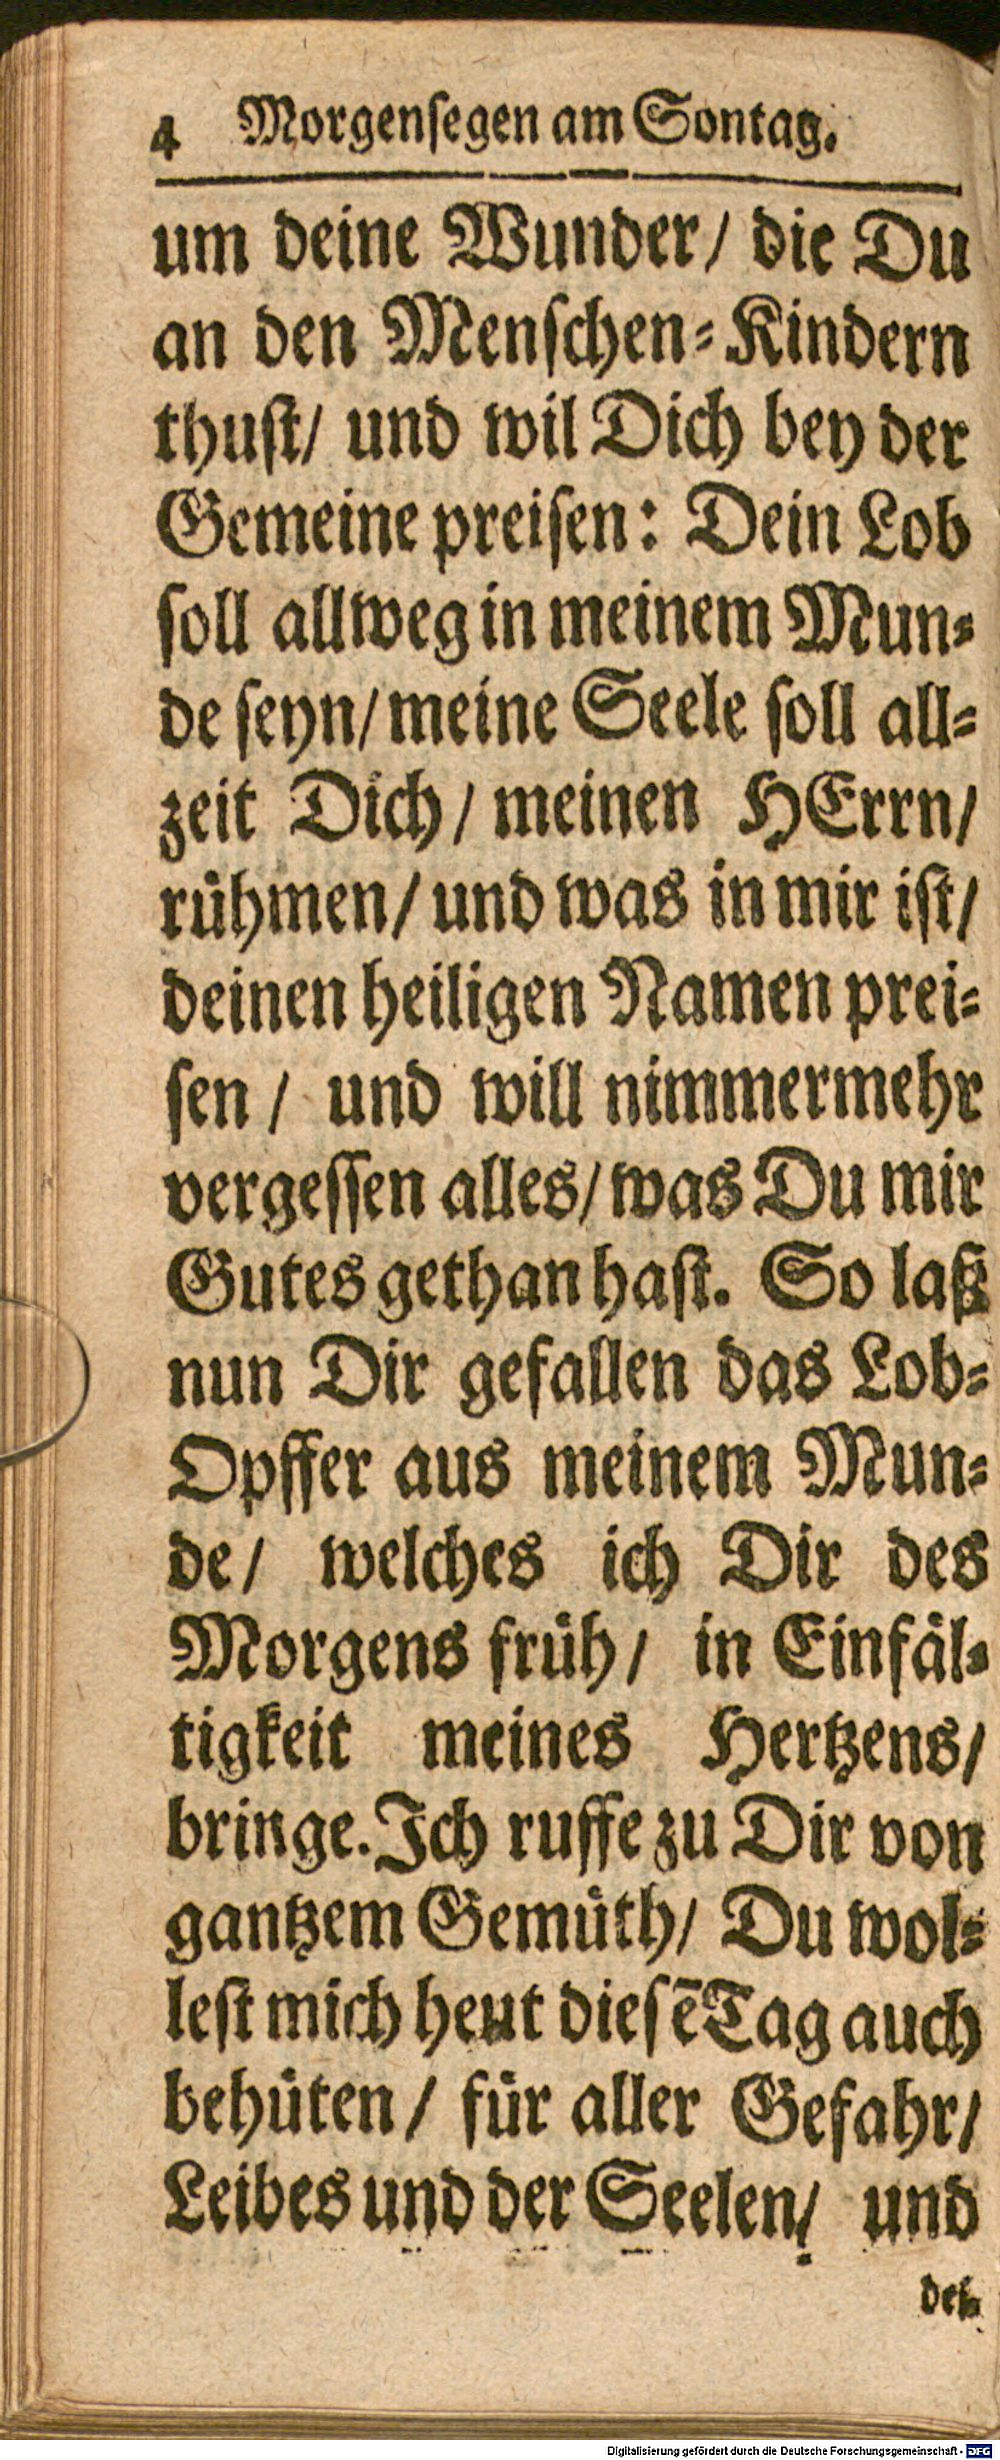 4 Morgenſegen am Sontag.
um deine Wunder/ die Du
an den Menſchen⸗Kindern
thuſt/ und wil Dich bey der
Gemeine preiſen: Dein Lob
ſoll allweg in meinem Mun⸗
de ſeyn/ meine Seele ſoll all⸗
zeit Dich/ meinen HErrn/
rühmen/ und was in mir iſt/
deinen heiligen Namen prei⸗
ſen/ und will nimmermehr
vergeſſen alles/ was Du mir
Gutes gethan haſt. So laß
nun Dir gefallen das Lob⸗
Opffer aus meinem Mun⸗
de/ welches ich Dir des
Morgens früh/ in Einfäl⸗
tigkeit meines Hertzens/
bringe. Ich ruffe zu Dir von
gantzem Gemüth/ Du wol⸗
leſt mich heut dieſē Tag auch
behüten/ für aller Gefahr/
Leibes und der Seelen/ und
deſ⸗
Digitalisierung gefördert durch die Deutsche Forschungsgemeinschaft - DFG